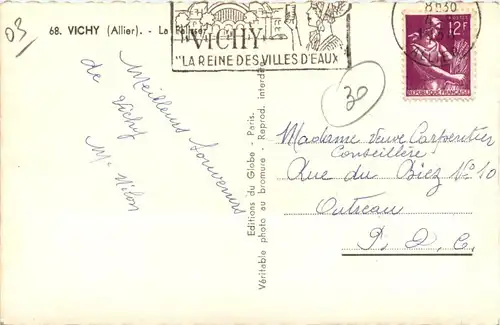 03
68. VICHY (Allier). - La
VICHY
"LA REINE DES VILLES D'EAUX"
8H30
POSTES
12F
REPUBLIQUE FRANÇAISE
30
Meilleurs Souvenirs
de Vichy
Editions du Globe - Paris.
Véritable photo au bromure - Reprod. interdite
Madame Veuve Carpentier
Conseillère
Rue du Biez No 10
Outreau
P. D. C.